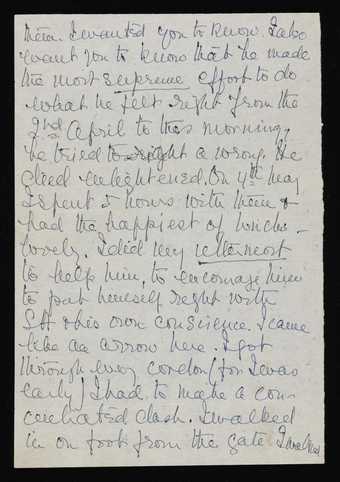 them. I wanted you to know. I also
want you to know that he made
the most supreme effort to do
what he felt right from the
2nd April to this morning,
he tried to right a wrong. He
died enlightened. On 4th May
I spent 5 hours with them &
had the happiest of
lovely. I did my uttermost
to help him, to encourage him
to put himself right with
his own conscience. I came
like an arrow here. I got
through every cordon (for I was
early) I had to make a con-
centrated dash. I walked
in on foot from the gate I walked